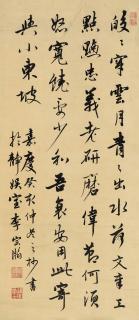 皎皎穿雲月青青出水荷文章工
點黝忠義老研磨偉節何須
怒寬饒要少和吾衰安用此寄
與小東坡
嘉慶癸仲之抄書
於靜娛室李宗瀚